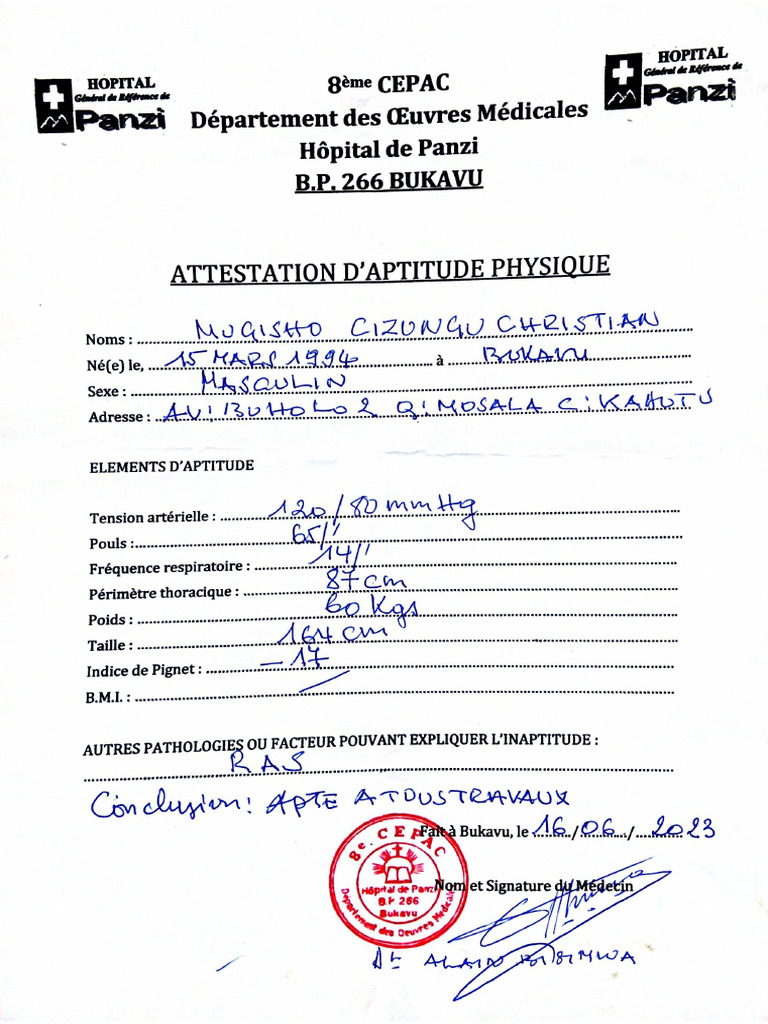 HOPITAL
Général de Référence de
Panzi
HOPITAL
Général de Référence de
Panzi
8ème CEPAC
Département des Œuvres Médicales
Hôpital de Panzi
B.P. 266 BUKAVU
ATTESTATION D'APTITUDE PHYSIQUE
Noms : MUGISHO CIZUNGU CHRISTIAN
Né(e) le, 15 MARS 1994 à BUKAVU
Sexe : MASCULIN
Adresse : AV: BUHOLO 2 Q: MOSALA C: KAHUTU
ELEMENTS D'APTITUDE
Tension artérielle : 120/80 mmHg
Pouls : 65/'
Fréquence respiratoire : 14/'
Périmètre thoracique : 87 cm
Poids : 60 Kgs
Taille : 164 cm
Indice de Pignet : -17
B.M.I. : /
AUTRES PATHOLOGIES OU FACTEUR POUVANT EXPLIQUER L'INAPTITUDE :
RAS
Conclusion: APTE A TOUS TRAVAUX
Fait à Bukavu, le 16/06/2023
8e. CEPAC
Hôpital de Panzi
B.P. 266
Bukavu
Département des Oeuvres Médicales
Nom et Signature du Médecin
Dr ALAIN BISIMWA